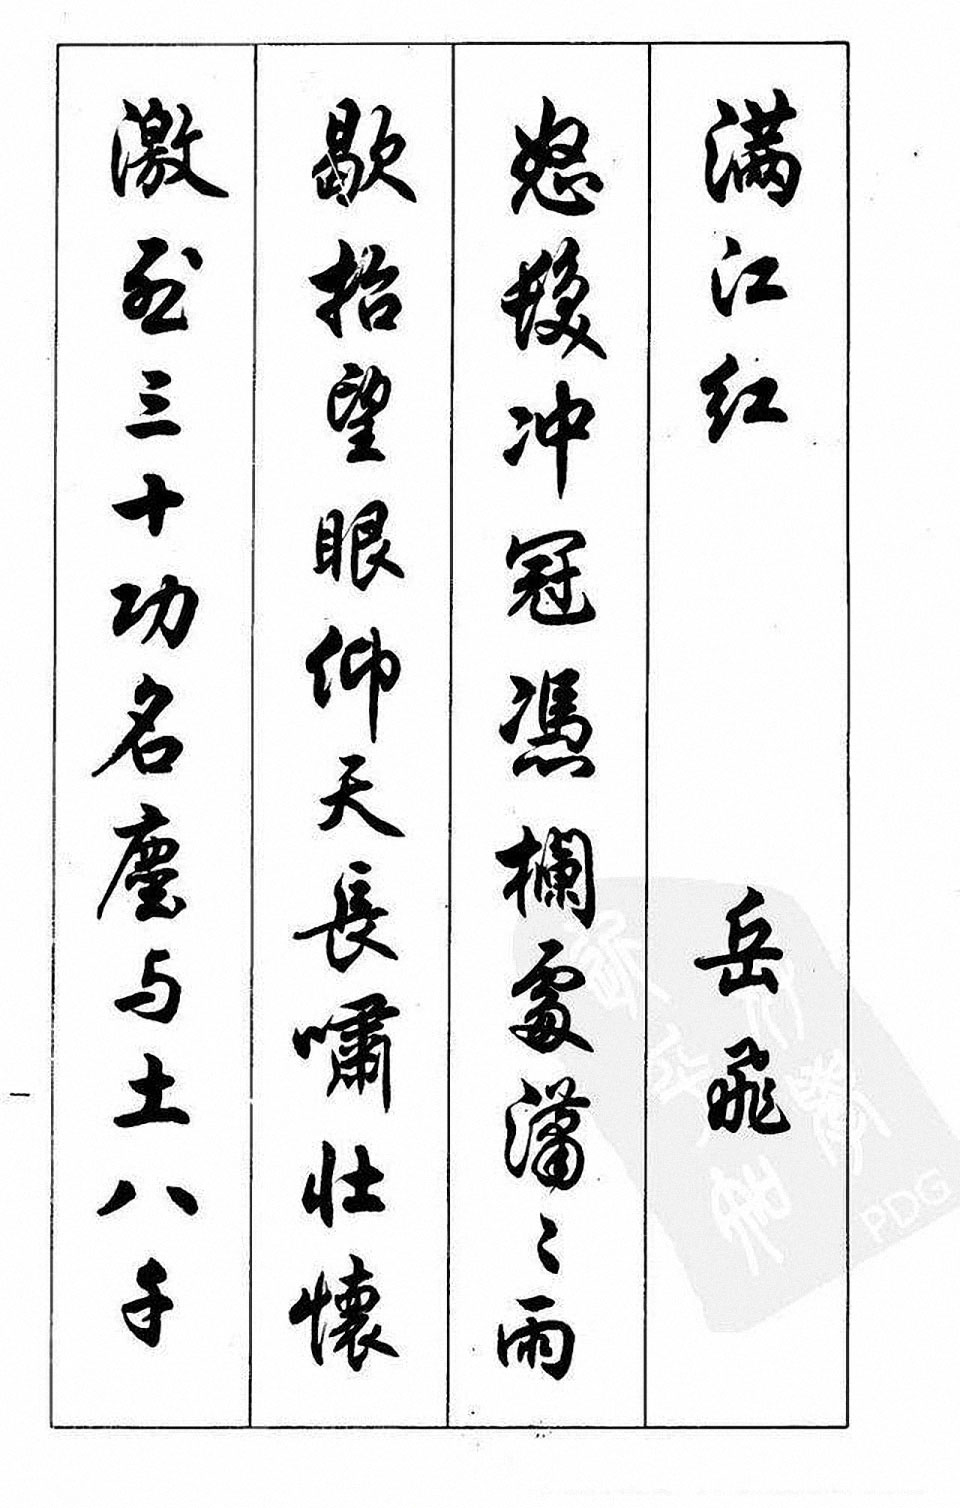 满江红 岳飛
怒髮冲冠憑欄處潇〻雨
歇抬望眼仰天長嘯壯懷
激烈三十功名塵与土八千
一
PDG